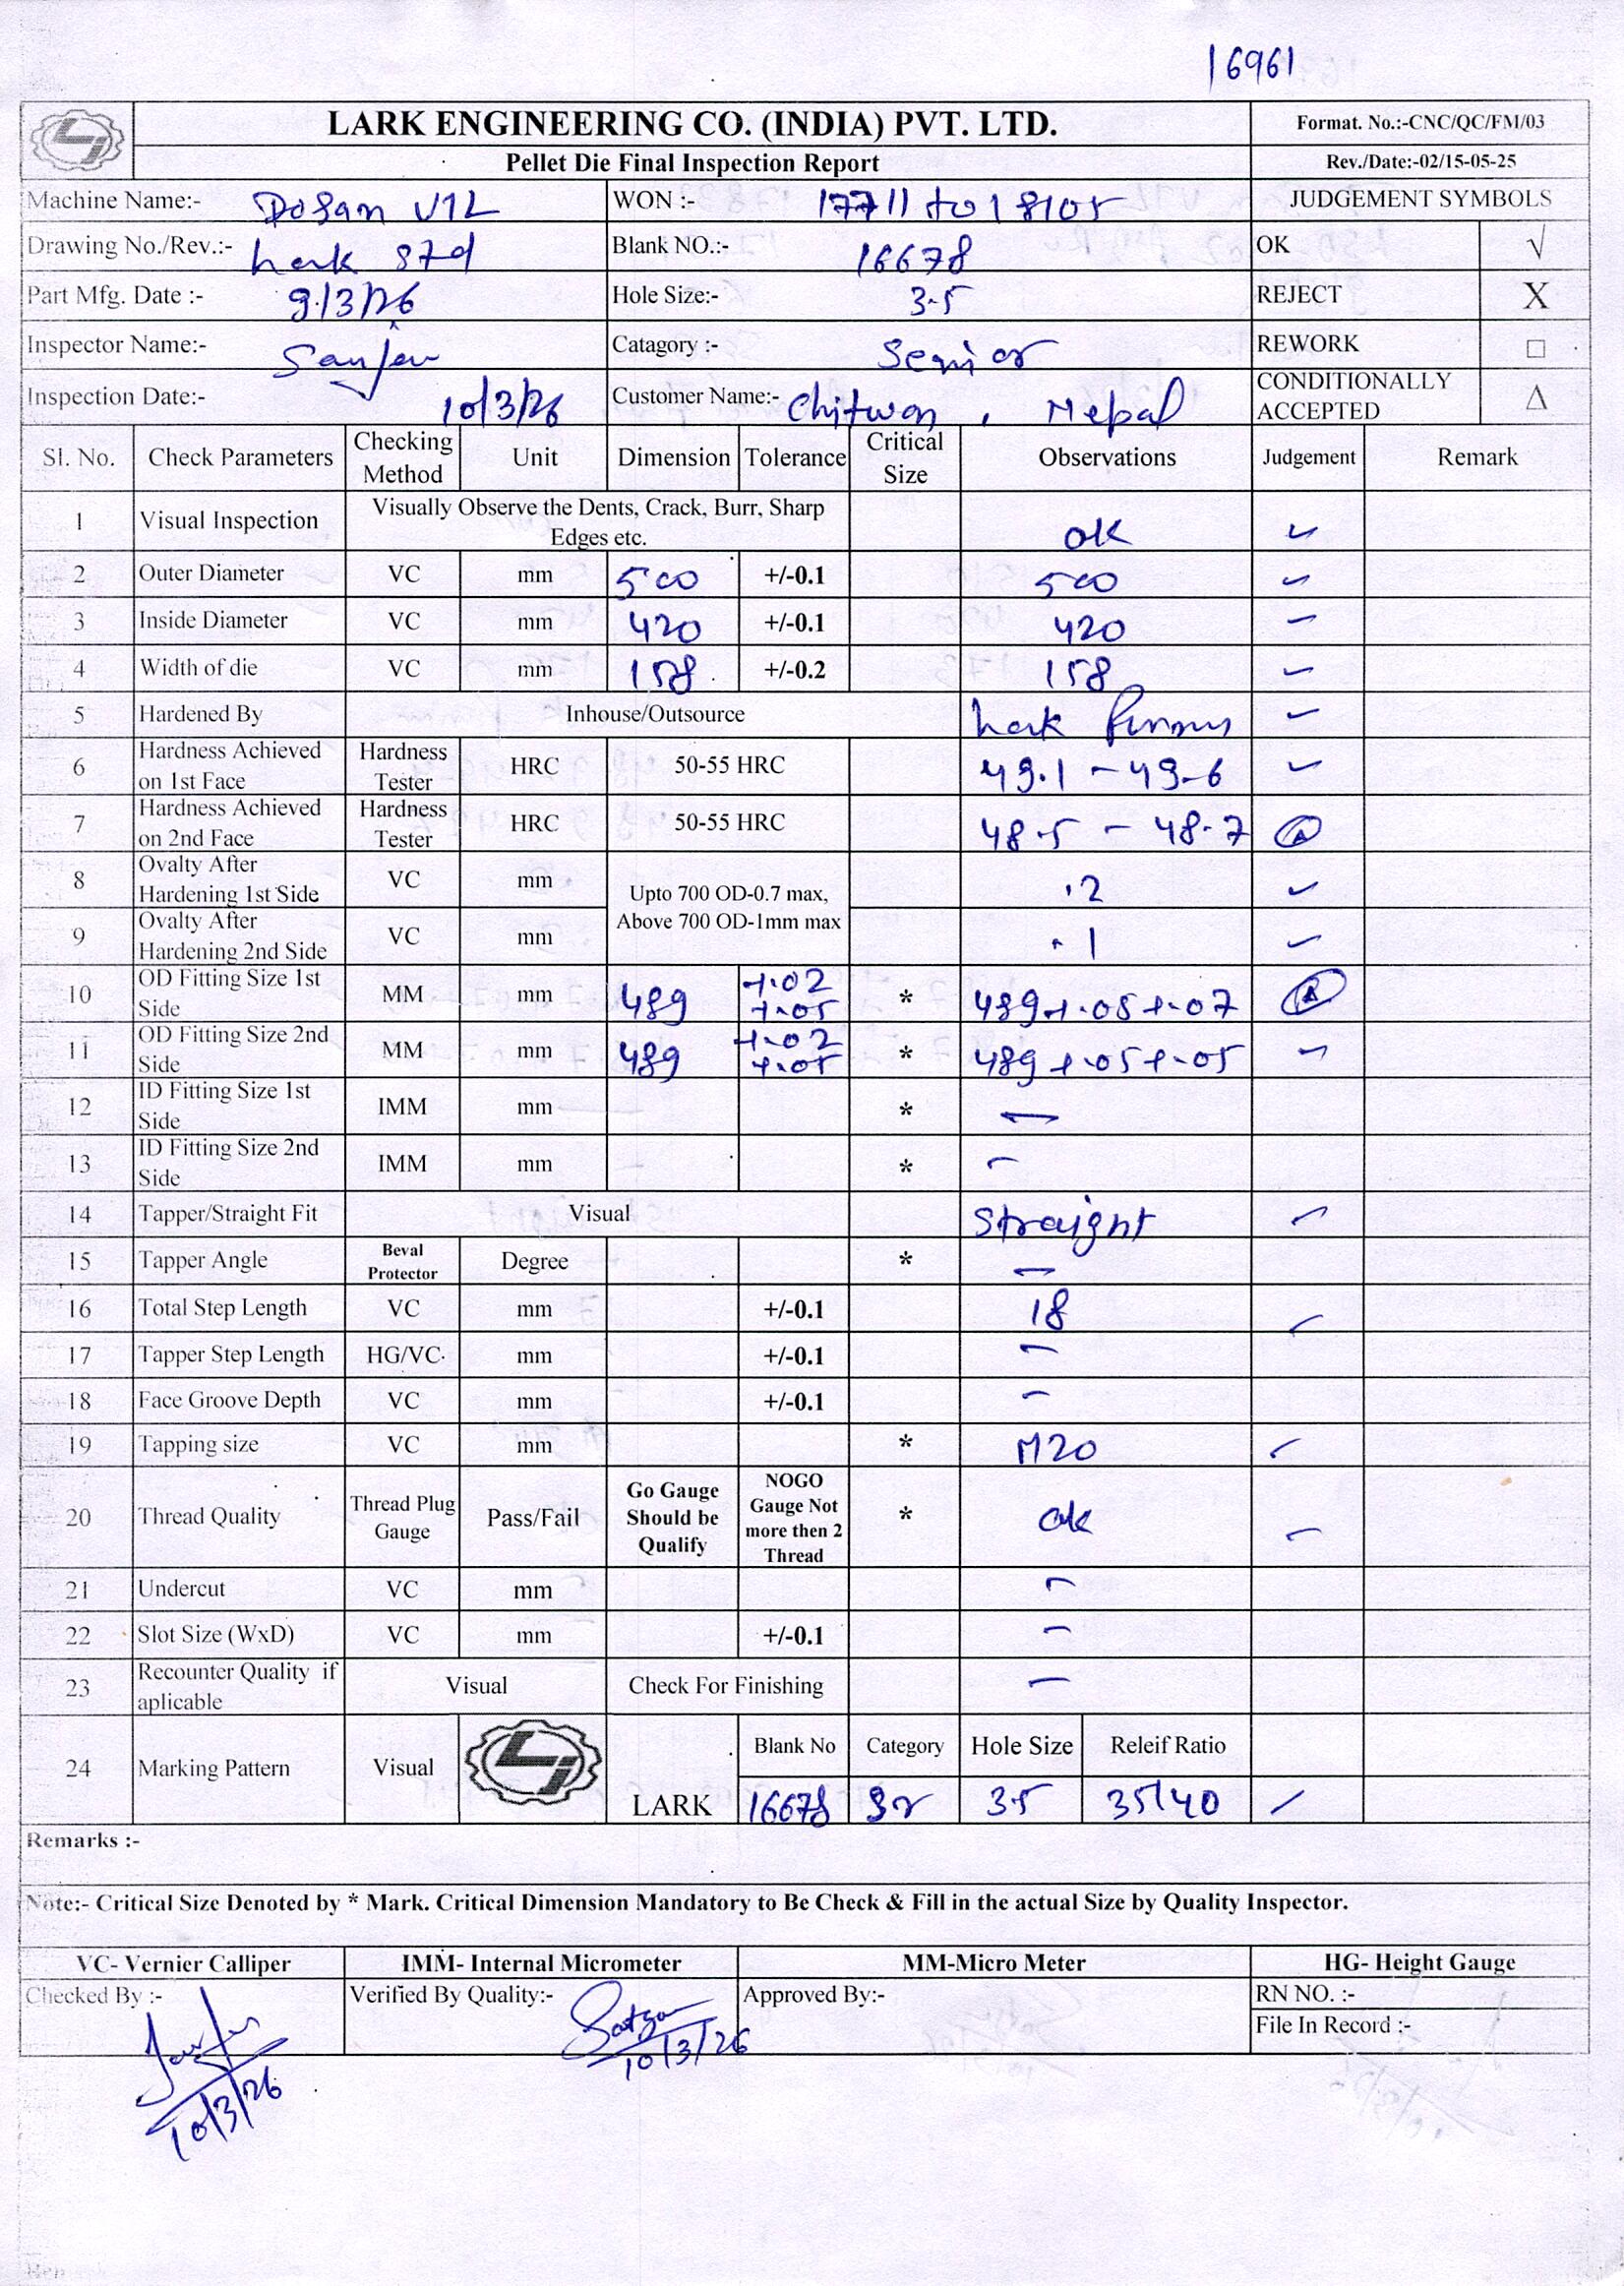 16961
LARK ENGINEERING CO. (INDIA) PVT. LTD. Format. No.:-CNC/QC/FM/03
Pellet Die Final Inspection Report Rev./Date:-02/15-05-25
Machine Name:- Dosan VTL WON :- 17711 to 18105 JUDGEMENT SYMBOLS
Drawing No./Rev.:- Lark std Blank NO.:- 16678 OK √
Part Mfg. Date :- 9/3/26 Hole Size:- 3.5 REJECT X
Inspector Name:- Catagory :- Senior REWORK □
Inspection Date:- 10/3/26 Customer Name:- Chitwan, Nepal CONDITIONALLY ACCEPTED Δ
Sl. No. Check Parameters Checking Method Unit Dimension Tolerance Critical Size Observations Judgement Remark
1 Visual Inspection Visually Observe the Dents, Crack, Burr, Sharp Edges etc. ok ✓
2 Outer Diameter VC mm 500 +/-0.1 500 ✓
3 Inside Diameter VC mm 420 +/-0.1 420 ✓
4 Width of die VC mm 158 +/-0.2 158 ✓
5 Hardened By Inhouse/Outsource Lark ✓
6 Hardness Achieved on 1st Face Hardness Tester HRC 50-55 HRC 49.1 - 49.6 ✓
7 Hardness Achieved on 2nd Face Hardness Tester HRC 50-55 HRC 48.5 - 48.7
8 Ovalty After Hardening 1st Side VC mm Upto 700 OD-0.7 max, Above 700 OD-1mm max .2 ✓
9 Ovalty After Hardening 2nd Side VC mm .1 ✓
10 OD Fitting Size 1st Side MM mm 489 +.02 +.05 * 489 +.05 +.07
11 OD Fitting Size 2nd Side MM mm 489 +.02 +.05 * 489 +.05 +.05 ✓
12 ID Fitting Size 1st Side IMM mm * —
13 ID Fitting Size 2nd Side IMM mm * —
14 Tapper/Straight Fit Visual Straight ✓
15 Tapper Angle Beval Protector Degree * —
16 Total Step Length VC mm +/-0.1 18 ✓
17 Tapper Step Length HG/VC mm +/-0.1 —
18 Face Groove Depth VC mm +/-0.1 —
19 Tapping size VC mm * M20 ✓
20 Thread Quality Thread Plug Gauge Pass/Fail Go Gauge Should be Qualify NOGO Gauge Not more then 2 Thread * ok ✓
21 Undercut VC mm —
22 Slot Size (WxD) VC mm +/-0.1 —
23 Recounter Quality if aplicable Visual Check For Finishing —
24 Marking Pattern Visual LARK Blank No Category Hole Size Releif Ratio
16678 Sr 3.5 35/40 ✓
Remarks :-
Note:- Critical Size Denoted by * Mark. Critical Dimension Mandatory to Be Check & Fill in the actual Size by Quality Inspector.
VC- Vernier Calliper IMM- Internal Micrometer MM-Micro Meter HG- Height Gauge
Checked By :- Verified By Quality:- Approved By:- RN NO. :-
File In Record :-
10/3/26
10/3/26